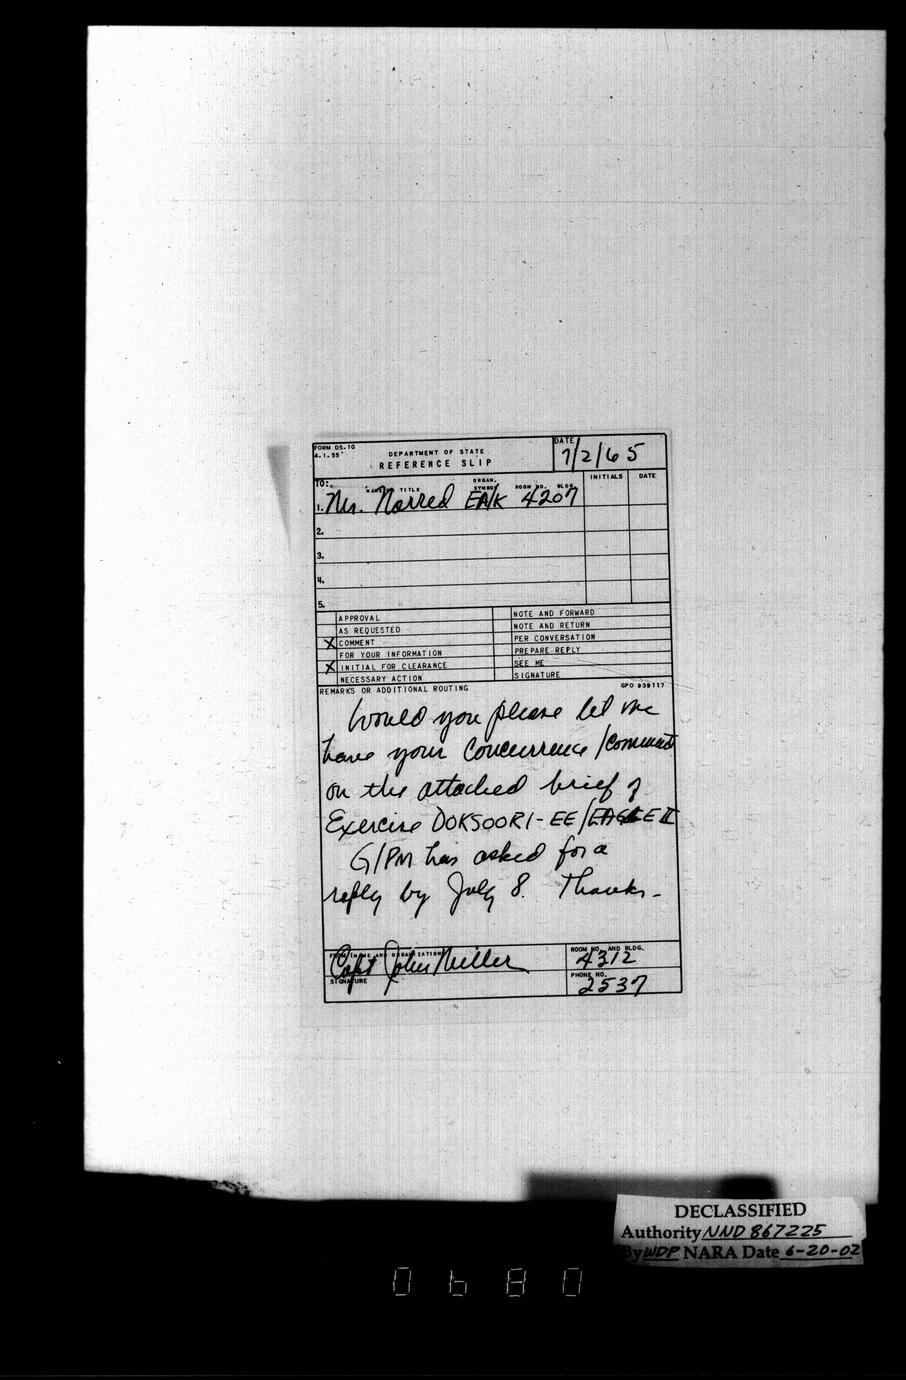 FORM DS-10
4.1.55
DEPARTMENT OF STATE
REFERENCE SLIP
DATE
7/2/65
TO:
NAME TITLE
ORGAN. SYMBOL
ROOM NO. BLDG.
INITIALS
DATE
1. Mr. Norred EA/K 4207
2.
3.
4.
5.
APPROVAL
AS REQUESTED
X COMMENT
FOR YOUR INFORMATION
X INITIAL FOR CLEARANCE
NECESSARY ACTION
NOTE AND FORWARD
NOTE AND RETURN
PER CONVERSATION
PREPARE REPLY
SEE ME
SIGNATURE
REMARKS OR ADDITIONAL ROUTING
GPO 939117
Would you please let me
have your concurrence/comment
on the attached brief of
Exercise DOKSOORI-EE/EAGLE II
G/PM has asked for a
reply by July 8. Thanks-
FROM (NAME AND ORGANIZATION)
Capt John Miller
SIGNATURE
ROOM NO. AND BLDG.
4312
PHONE NO.
2537
DECLASSIFIED
Authority NND 867225
By WDP NARA Date 6-20-02
0680